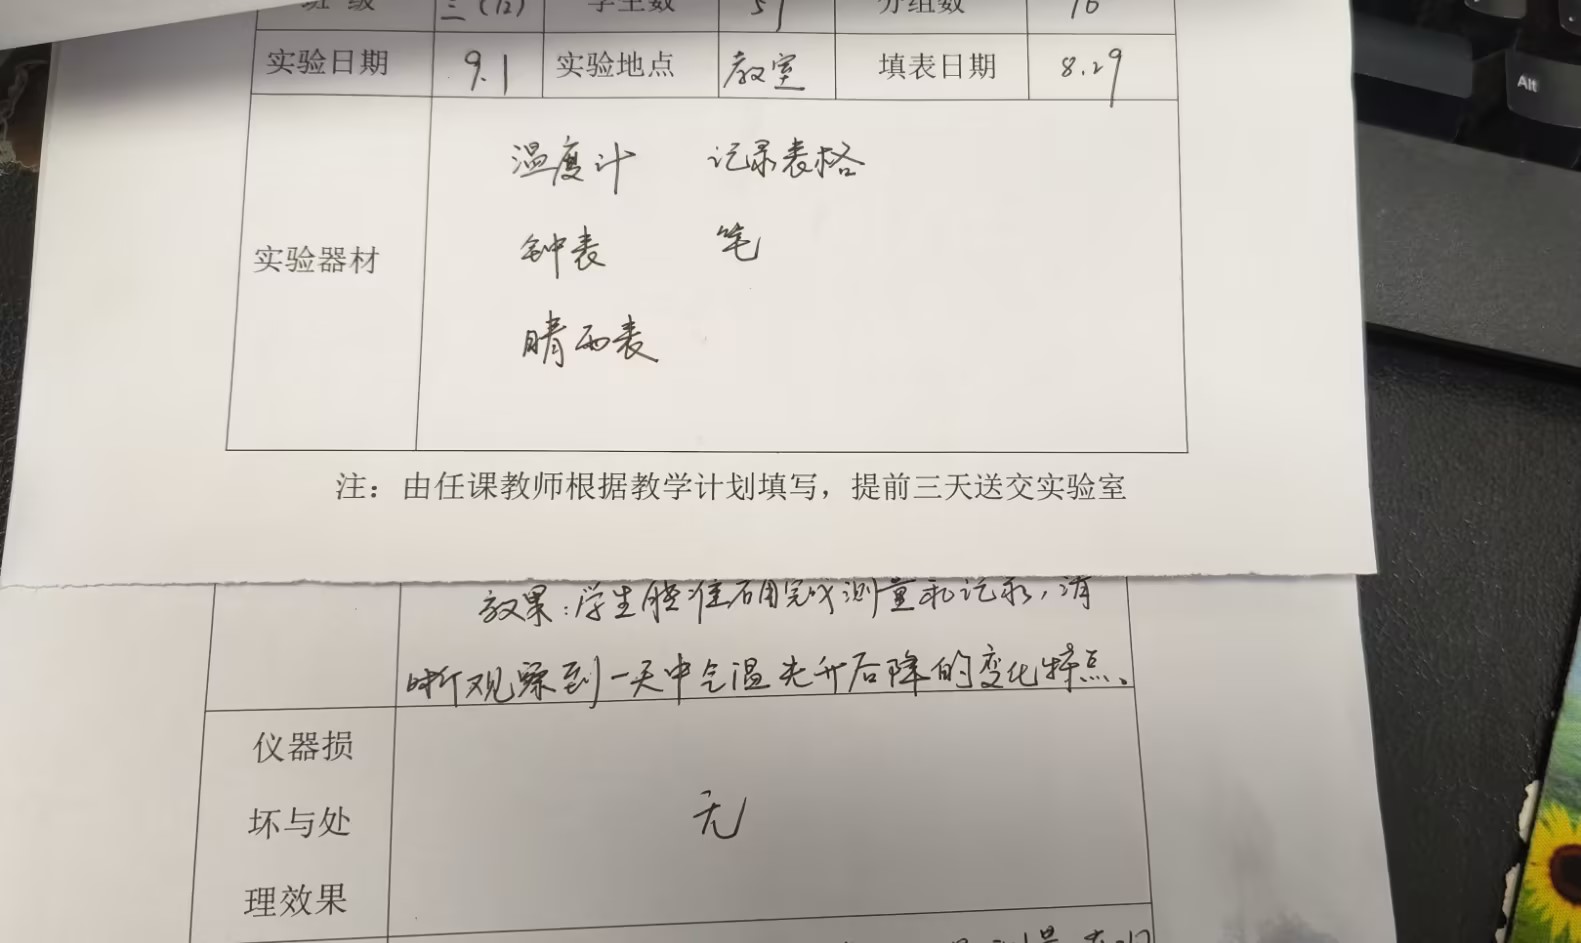 班 级 三(12) 学生数 51 分组数 16
实验日期 9.1 实验地点 教室 填表日期 8.29
温度计 记录表格
钟表 笔
实验器材
晴雨表
注：由任课教师根据教学计划填写，提前三天送交实验室
效果：学生能准确完成测量和记录，清
晰观察到一天中气温先升后降的变化特点、
仪器损
坏与处
理效果
无
Alt